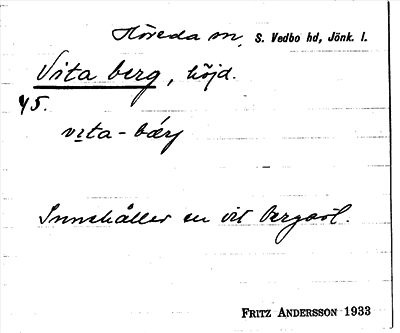 Höreda sn, S. Vedbo hd, Jönk. l.
Vita berg, höjd.
45.
vɪta-bærj
Innehåller en vit bergart.
FRITZ ANDERSSON 1933